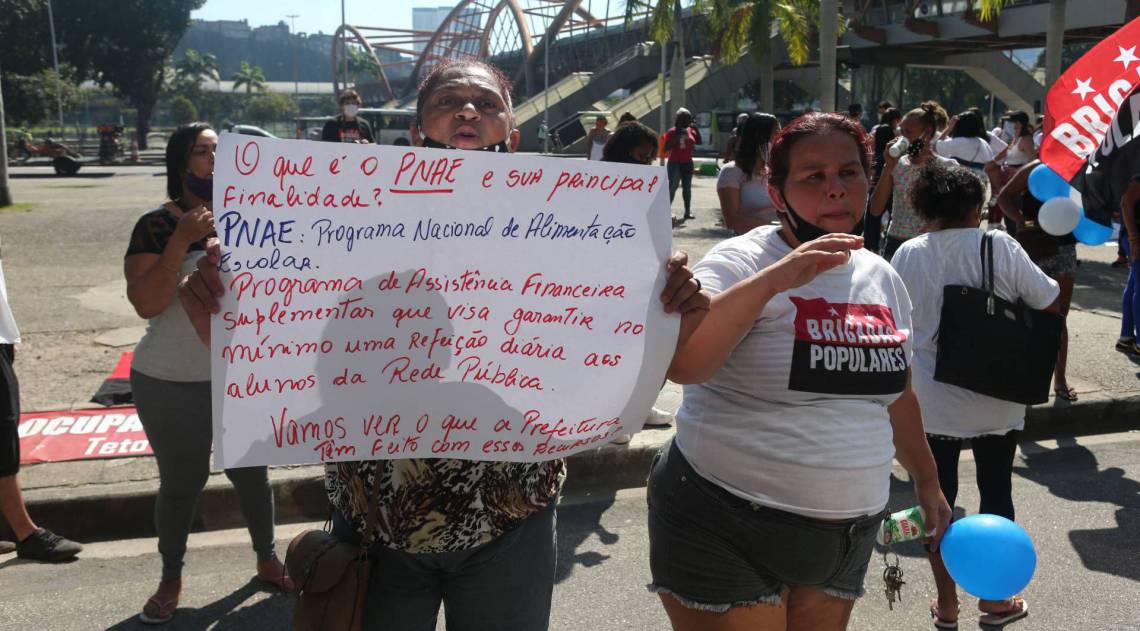 O que é o PNAE e sua principal
finalidade?
PNAE: Programa Nacional de Alimentação
Escolar.
Programa de Assistência Financeira
suplementar que visa garantir no
mínimo uma Refeição diária aos
alunos da Rede Pública.
Vamos ver o que a Prefeitura
Têm feito com esses Recursos?
BRIGADAS
POPULARES
BRIG
OCUPA
Teto